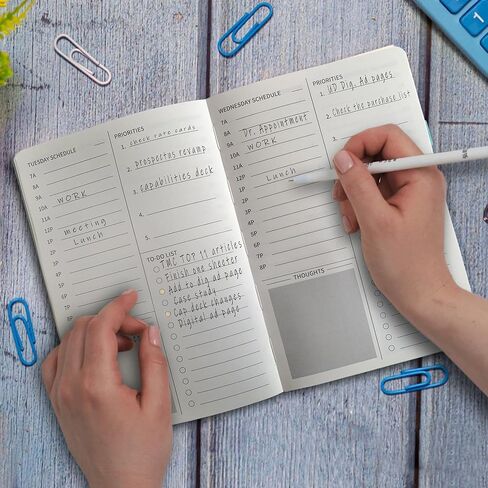 TUESDAY SCHEDULE
7A
8A
9A
10A WORK
11A
12P meeting
1P Lunch
2P
3P
4P
5P
6P
7P
8P
PRIORITIES
1. check rate cards
2. prospectus revamp
3. capabilities deck
4.
5.
TO-DO LIST
TMC TOP 11 articles
Finish one sheeter
Add to dig ad page
Case study
Cap deck changes
Digital ad page
WEDNESDAY SCHEDULE
7A
8A Dr. Appointment
9A WORK
10A
11A
12P Lunch
1P
2P
3P
4P
5P
6P
7P
8P
THOUGHTS
PRIORITIES
1. UD Dig. Ad pages
2. Check the purchase list
3.